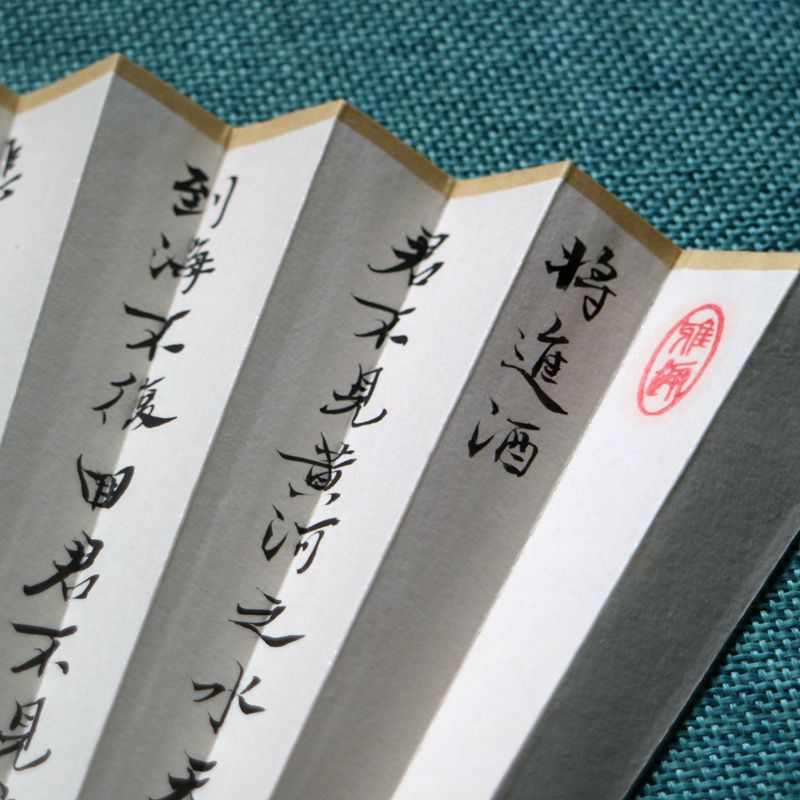 将進酒
君不見黄河之水天
到海不復回君不見